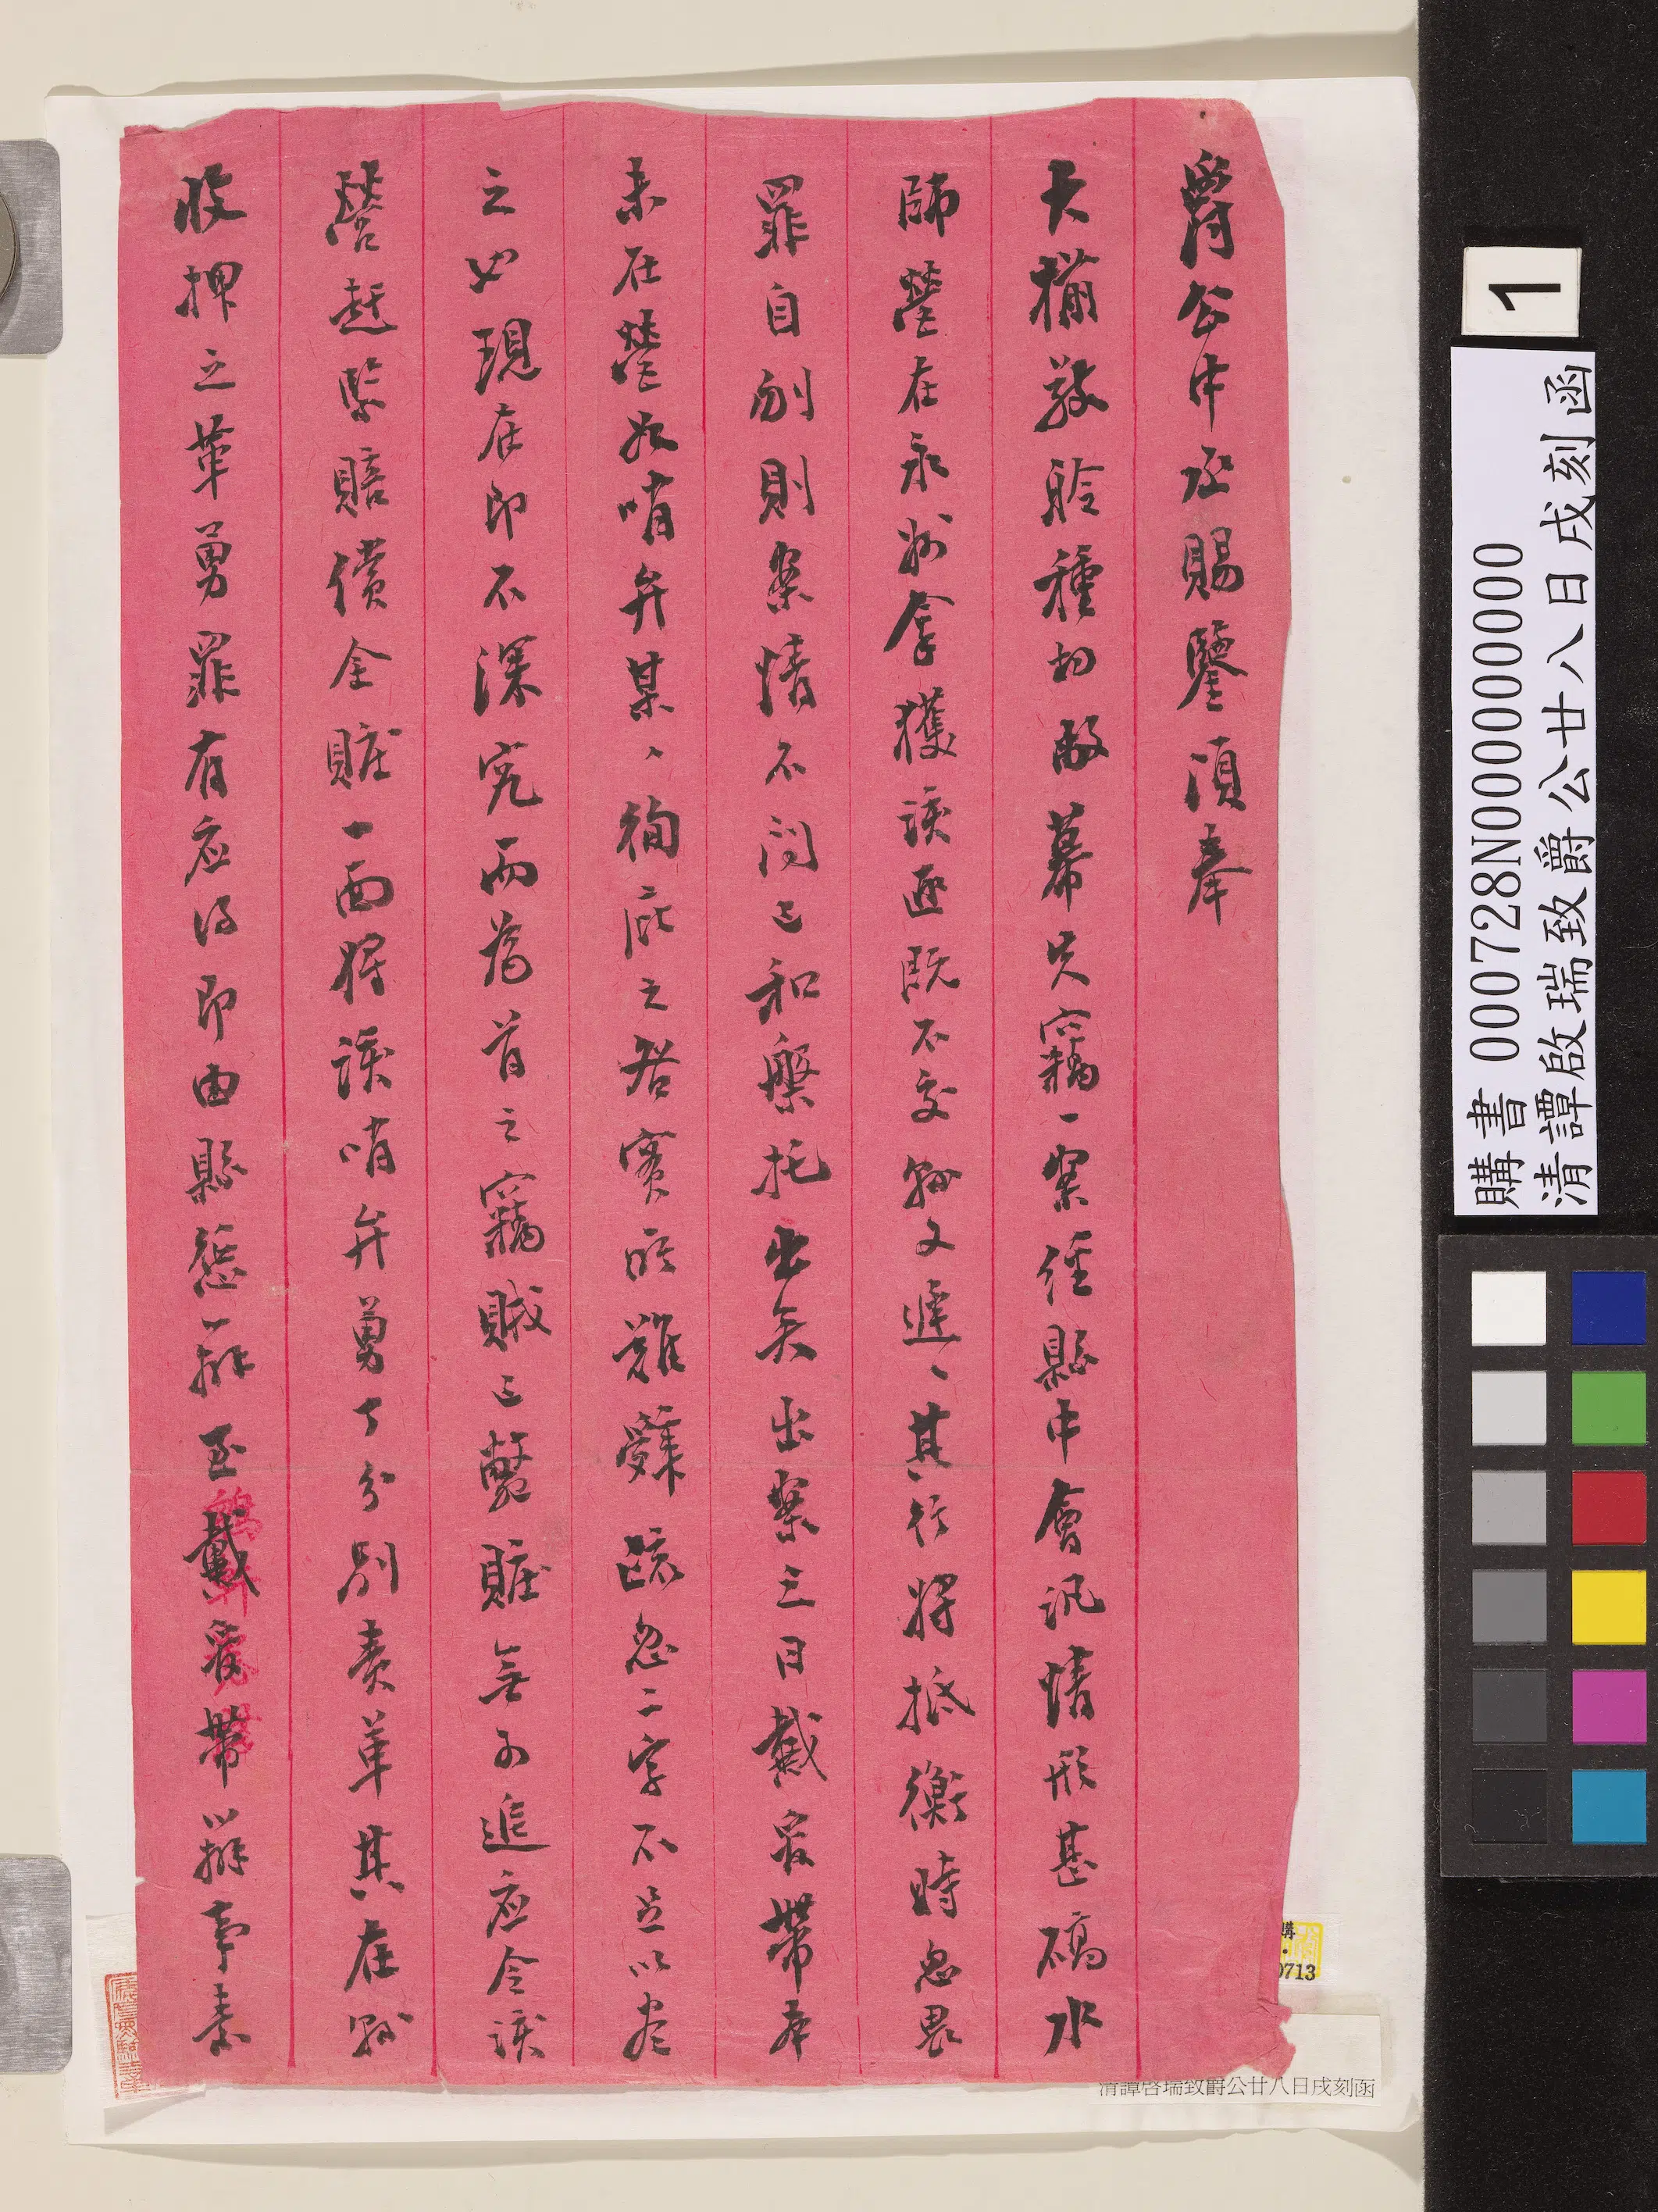 爵公中丞賜鑒頃奉
大搠敬聆種切敝幕失竊一案經縣中會訊情形甚礄水
師營在永州拿獲該匪既不交縣又遲、其行將抵衡時忽畏
罪自刎則案情不問已和盤托出矣出案三日戴宿帶本
未在營如哨弁某、徇庇之咎實所難辭疏忽二字不足以盡
之也現在即不深究而為首之竊賊已斃贓無可追應令該
營赶緊賠償全贓一面將該哨弁勇丁分別責革其在縣
收押之革勇罪有應得即由縣懲辦至戴宿帶辦事素
購書 000728N000000000
清譚啟瑞致爵公廿八日戌刻函
1
清譚啓瑞致爵公廿八日戌刻函
購
0713